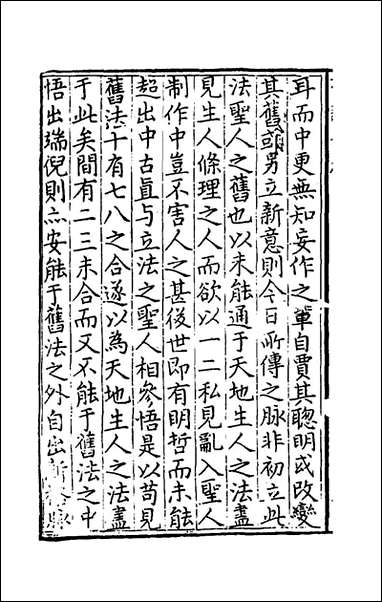 耳而中更無知妄作之輩自賈其聰明或改變
其舊或另立新意則今日所傳之脉非初立此
法聖人之舊也以未能通于天地生人之法盡
見生人條理之人而欲以一二私見亂入聖人
制作中豈不害人之甚後世即有明哲而未能
超出中古直与立法之聖人相參悟是以苟見
舊法十有七八之合遂以為天地生人之法盡
于此矣間有二三未合而又不能于舊法之中
悟出端倪則亦安能于舊法之外自出新